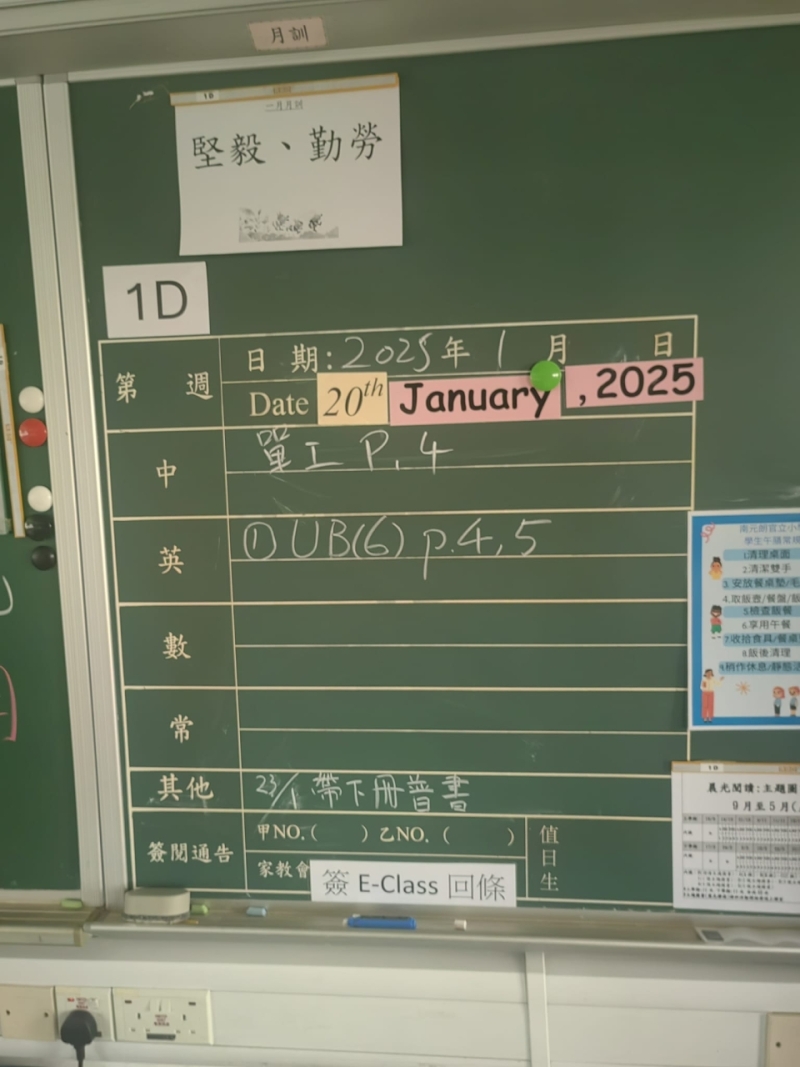 月訓
1B
一月月訓
堅毅、勤勞
1D
第 週
日 期:2025年 1 月 日
Date 20th January, 2025
中
單工 P.4
英
① UB(6) p.4,5
數
常
其他
23/1 帶下冊普書
簽閱通告
甲NO.( ) 乙NO.( )
家教會
簽 E-Class 回條
值日生
南元朗官立小
學生午膳常規
1.清理桌面
2.清潔雙手
3.安放餐桌墊/毛
4.取飯壺/餐盤/飯
5.檢查飯餐
6.享用午餐
7.收拾食具/餐桌
8.飯後清理
9.稍作休息/靜態活
1B
晨光閱讀:主題圖
9月至5月(